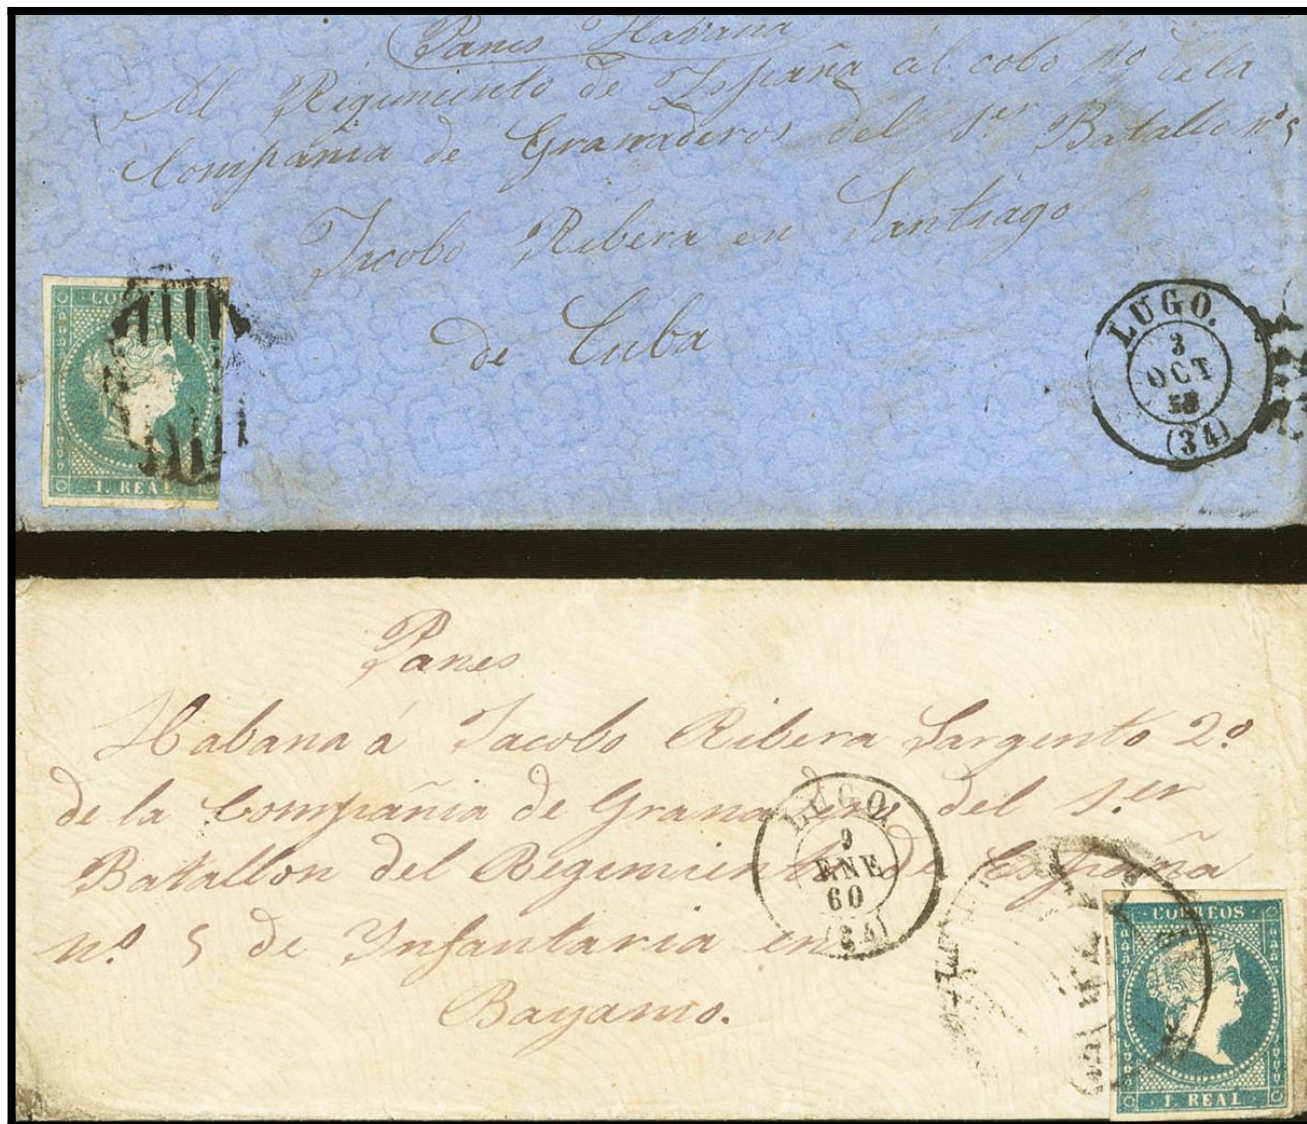 Panes Habana
Al Regimiento de España al cobo 1º de la
Compánia de Granaderos del 1er Batallon nº 5
Jacobo Ribera en Santiago
de Cuba
CORREOS
1. REAL
LUGO.
3
OCT
58
(34)
Panes
Habana á Jacobo Ribera Sargento 2º
de la Compañia de Granaderos del 1.er
Batallon del Regimiento de España
nº 5 de Ynfantaria en
Bayamo.
LUGO.
9
ENE
60
(34)
CORREOS
1. REAL